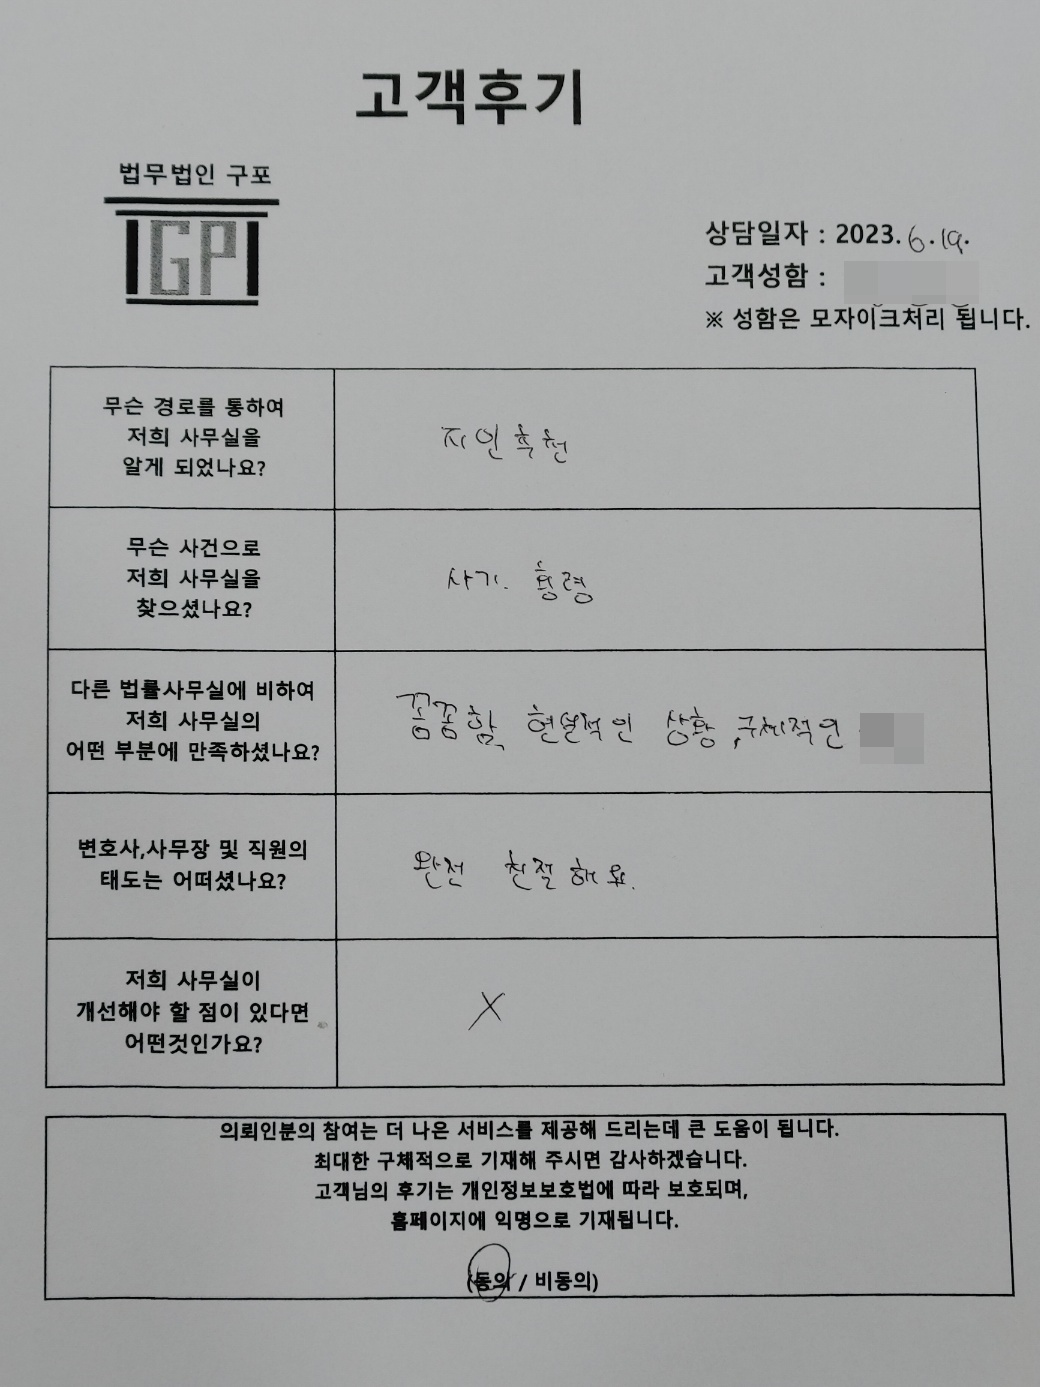 고객후기
법무법인 구포
GP
상담일자 : 2023. 6. 19.
고객성함 :
※ 성함은 모자이크처리 됩니다.
무슨 경로를 통하여
저희 사무실을
알게 되었나요?
지인추천
무슨 사건으로
저희 사무실을
찾으셨나요?
사기. 횡령
다른 법률사무실에 비하여
저희 사무실의
어떤 부분에 만족하셨나요?
꼼꼼함, 현실적인 상황, 구체적인
변호사,사무장 및 직원의
태도는 어떠셨나요?
완전 친절해요.
저희 사무실이
개선해야 할 점이 있다면
어떤것인가요?
X
의뢰인분의 참여는 더 나은 서비스를 제공해 드리는데 큰 도움이 됩니다.
최대한 구체적으로 기재해 주시면 감사하겠습니다.
고객님의 후기는 개인정보보호법에 따라 보호되며,
홈페이지에 익명으로 기재됩니다.
(동의 / 비동의)